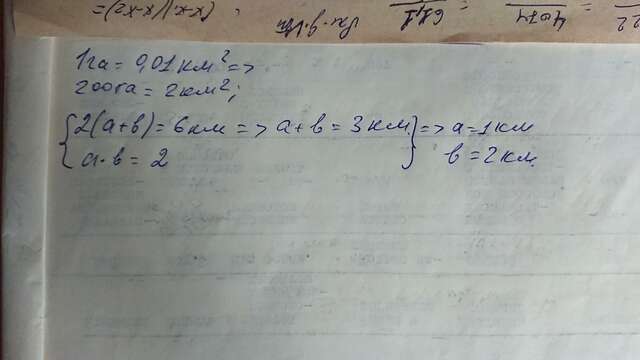 1га = 0,01 км² =>
200га = 2км²;
{2(a+b)=6км => a+b = 3км} => a=1км
a·b = 2 b=2км